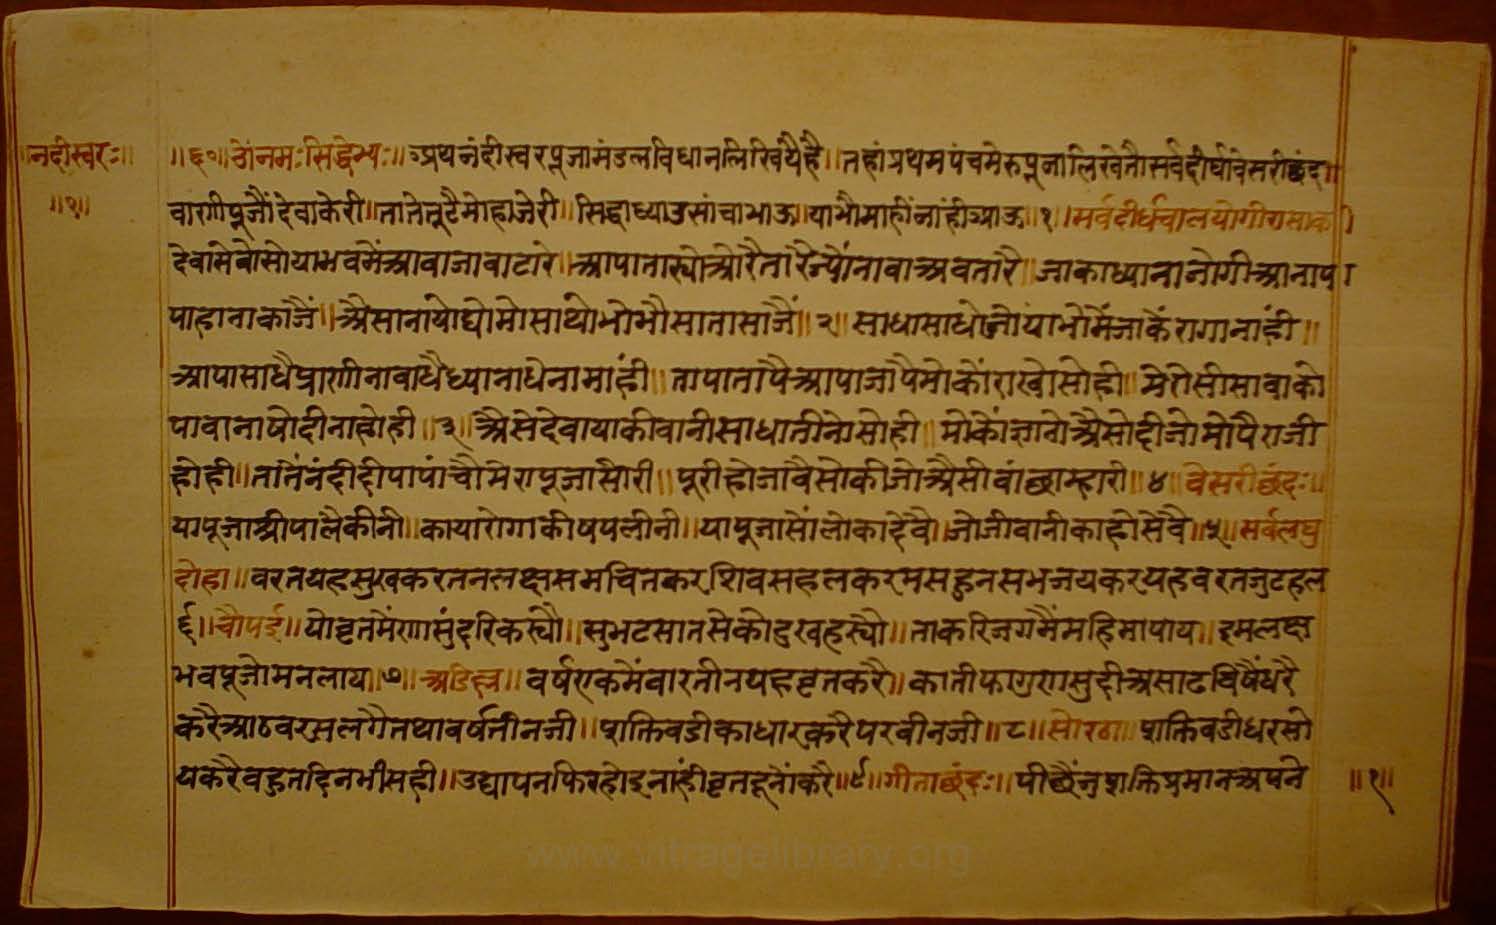 ॥नदीस्वरः॥
॥१॥
॥६०॥ओंनमःसिद्धेभ्यः॥अथनंदीस्वरपूजामंडलविधानलिखियैहै॥तहांप्रथमपंचमेरुपूजालिखेतौसर्वदीर्घावेसरीछंद॥
वाणीपूजौंदेवाकेरी॥तातेतूटैमोहाजेरी॥सिद्धाध्याउसांचाभाऊ॥याभौमाहींनांहीआऊ॥१॥सर्वदीर्घचाल
देवासेवोसोयाभवमेंआवाजावाटारे॥आपातास्योओरैतारैज्योंनावाअवतारै॥जाकाध्यानाजोगीआनाप
पाहानाकाजैं॥ऐसानाषोद्योमोसाथोभोभौसातासाजैं॥२॥साधासाधोजोयाभोमेंजाकेंरागानाहीं॥
आपासाधैप्राणीनाबाधैध्यानाधेनामाहीं॥तापातापैआपाजापैमोकोंराखेसोही॥मेरोसीसावाको
पावानाषोदीनाहोही॥३॥ऐसेदेवायाकीवानीसाधातीनोसोही॥मोकोंज्ञानोऐसोदीजोमोपैराजी
होही॥तातेंनंदीदीपापांचौमेरापूजासारी॥पूरीहोजावैसोकीजोऐसीवांछाम्हारी॥४॥वेसरीछंदः॥
यापूजाश्रीपालैकीनी॥कायारोगाकीषपलीनी॥यापूजासोंलोकादेवै॥जोजीवानीकाहोसेवै॥५॥सर्वलघु
दोहा॥वरतयहसुखकरतनलक्षसमचितकरशिवसहलकरमसहुनसभजयकरयहवरतजुटहल
६॥चौपई॥योवृतमेंणासुंदरिकस्यौ॥सुभटसातसेकोदुखहस्यौ॥ताकरिजगमैंमहिमापाय॥इमलक्ष
भवपूजोमनलाय॥७॥अडिल्ल॥वर्षएकमेंवारतीनयहवृतकरै॥कातीफागुणसुदीअसाढविषैंधरै
करैआठवरसलगैतथावर्षतीनजी॥शक्तिवडीकाधारकरैपरवीनजी॥८॥सोरठा॥शक्तिवडीधरसो
यकरैवहुतदिनभीसही॥उद्यापनफिरहोइनांहीवृतदूनोंकरै॥९॥गीताछंदः॥पीछैंनुशक्तिप्रमानअपने
॥१॥
www.vitragelibrary.org